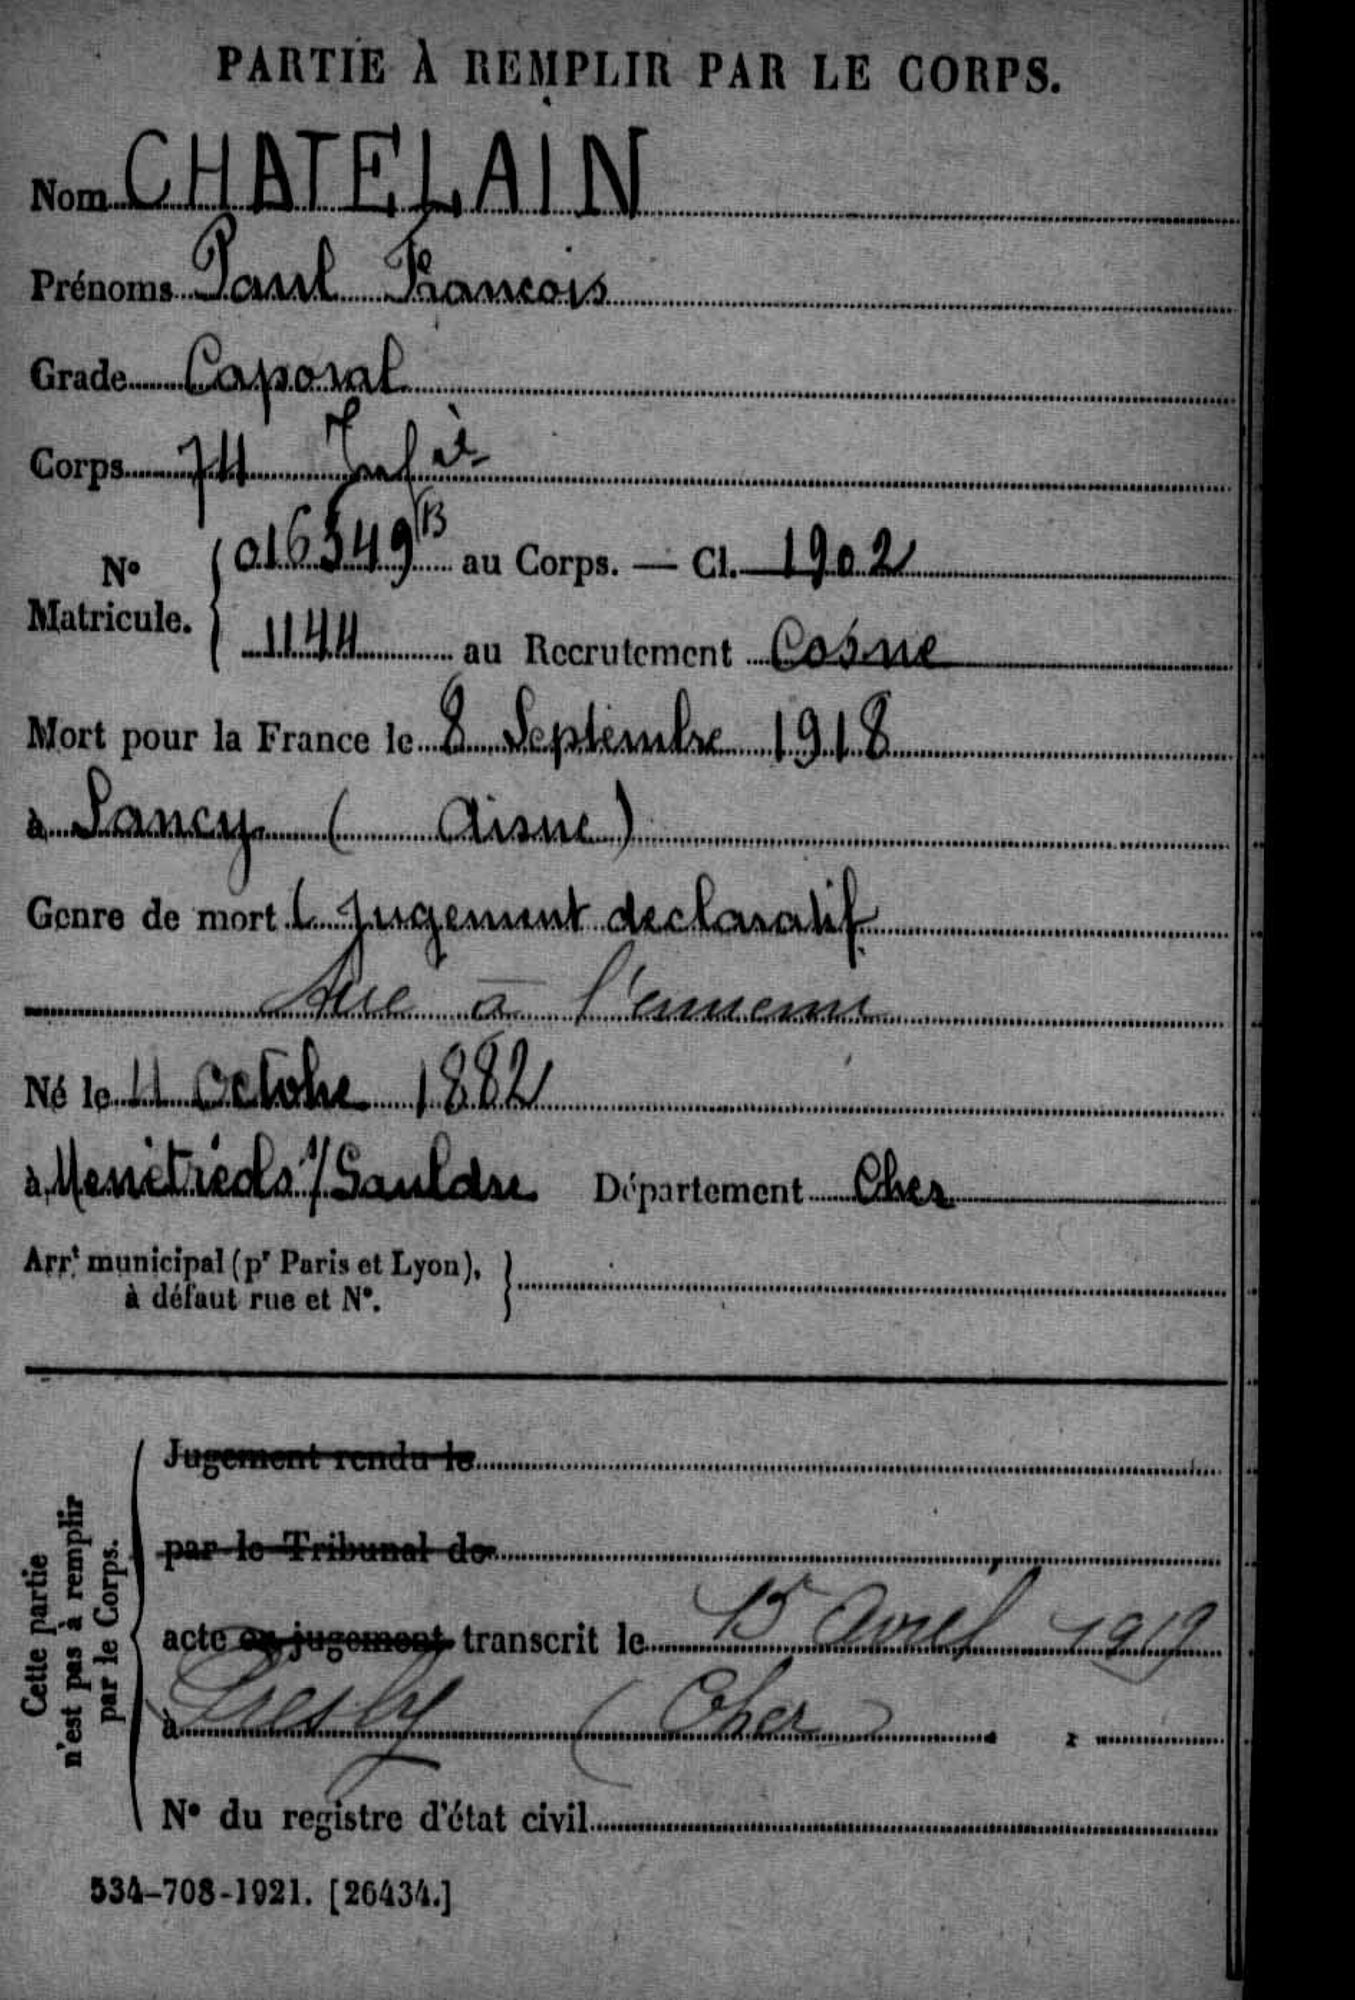 PARTIE À REMPLIR PAR LE CORPS.
Nom CHATELAIN
Prénoms Paul Francois
Grade Caporal
Corps 74 Inf ie
N° Matricule. { 016549 B au Corps. — Cl. 1902
1144 au Recrutement Cosne
Mort pour la France le 8 Septembre 1918
à Sancy ( Aisne )
Genre de mort ( Jugement declaratif
Tué à l'ennemi
Né le 11 Octobre 1882
à Menétréols s/ Sauldre Département Cher
Arrt municipal (pr Paris et Lyon), à défaut rue et N°. }
Cette partie n'est pas à remplir par le Corps.
Jugement rendu le
par le Tribunal de
acte ou jugement transcrit le 15 Avril 1919
à Presly ( Cher )
N° du registre d'état civil
534-708-1921. [26434.]